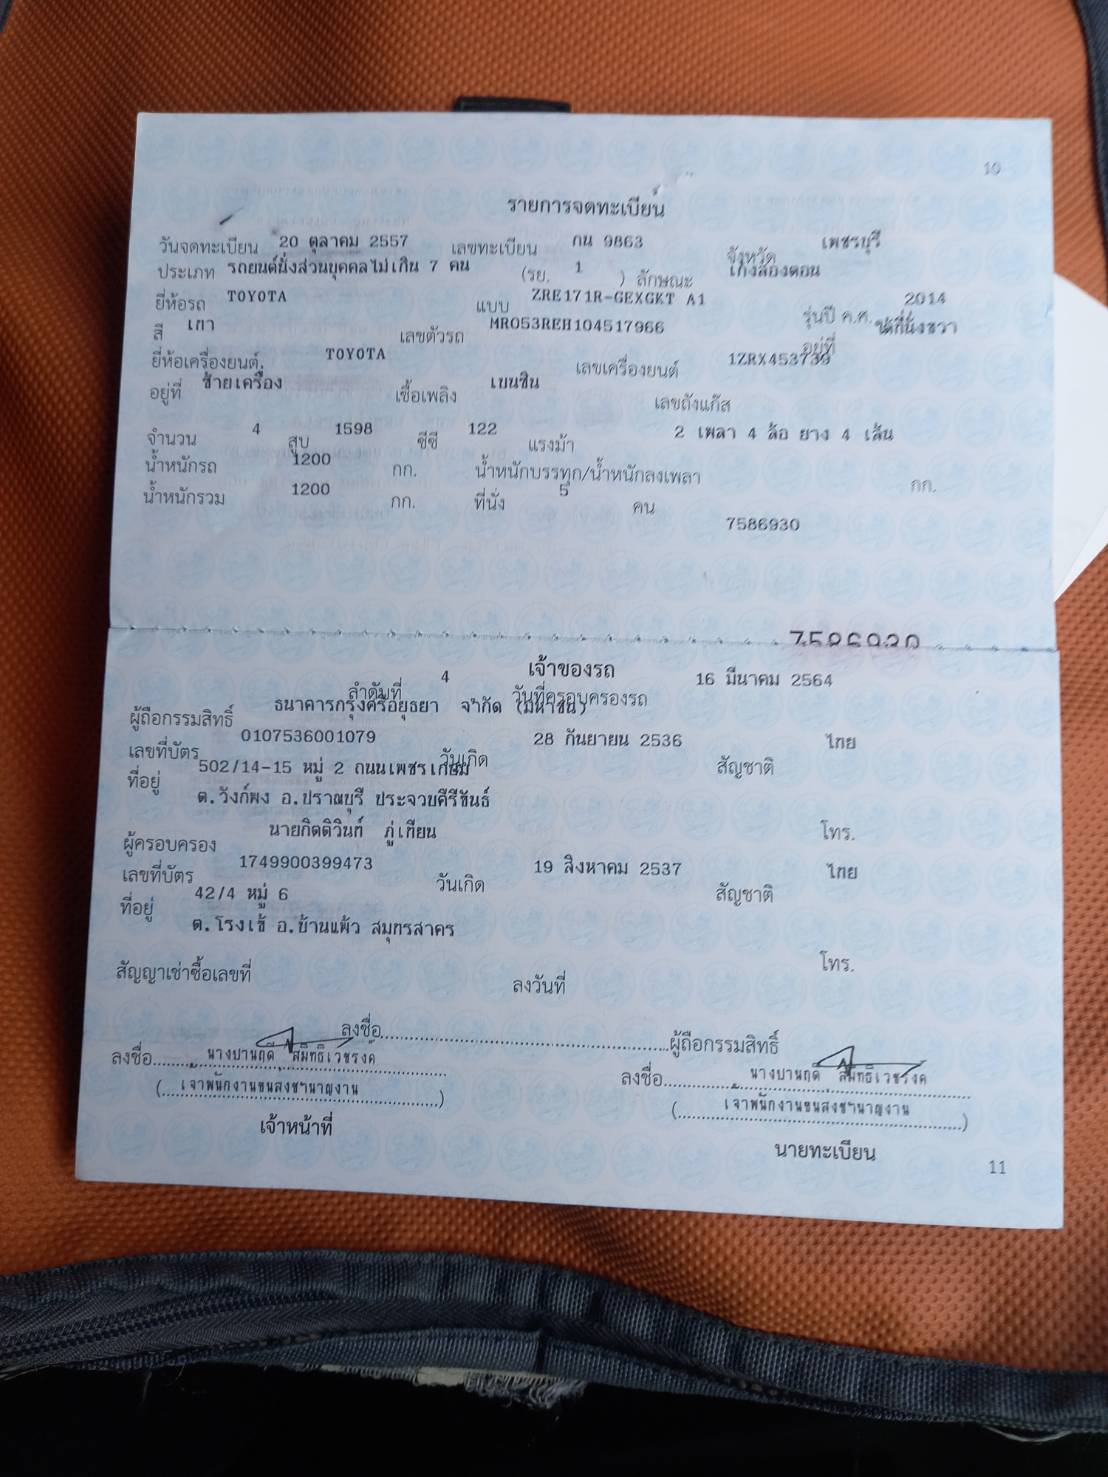 10
รายการจดทะเบียน
วันจดทะเบียน 20 ตุลาคม 2557 เลขทะเบียน กน 9863 จังหวัด เพชรบุรี
ประเภท รถยนต์นั่งส่วนบุคคลไม่เกิน 7 คน (รย. 1 ) ลักษณะ เก๋งสองตอน
ยี่ห้อรถ TOYOTA แบบ ZRE171R-GEXGKT A1 รุ่นปี ค.ศ. 2014
สี เทา เลขตัวรถ MR053REH104517966 อยู่ที่ ใต้ที่นั่งขวา
ยี่ห้อเครื่องยนต์ TOYOTA เลขเครื่องยนต์ 1ZRX453739
อยู่ที่ ซ้ายเครื่อง เชื้อเพลิง เบนซิน เลขถังแก๊ส
จำนวน 4 สูบ 1598 ซีซี 122 แรงม้า 2 เพลา 4 ล้อ ยาง 4 เส้น
น้ำหนักรถ 1200 กก. น้ำหนักบรรทุก/น้ำหนักลงเพลา กก.
น้ำหนักรวม 1200 กก. ที่นั่ง 5 คน
7586930
7586930
เจ้าของรถ
ลำดับที่ 4 วันที่ครอบครองรถ 16 มีนาคม 2564
ผู้ถือกรรมสิทธิ์ ธนาคารกรุงศรีอยุธยา จำกัด (มหาชน)
เลขที่บัตร 0107536001079 วันเกิด 28 กันยายน 2536 สัญชาติ ไทย
ที่อยู่ 502/14-15 หมู่ 2 ถนนเพชรเกษม
ต.วังก์พง อ.ปราณบุรี ประจวบคีรีขันธ์
โทร.
ผู้ครอบครอง นายกิตติวินท์ ภู่เทียน
เลขที่บัตร 1749900399473 วันเกิด 19 สิงหาคม 2537 สัญชาติ ไทย
ที่อยู่ 42/4 หมู่ 6
ต.โรงเข้ อ.บ้านแพ้ว สมุทรสาคร
โทร.
สัญญาเช่าซื้อเลขที่ ลงวันที่
ลงชื่อ ผู้ถือกรรมสิทธิ์
ลงชื่อ นางปานฤดี สมิทธิเวชรงค์
(เจ้าพนักงานขนส่งชำนาญงาน)
เจ้าหน้าที่
ลงชื่อ นางปานฤดี สมิทธิเวชรงค์
(เจ้าพนักงานขนส่งชำนาญงาน)
นายทะเบียน
11